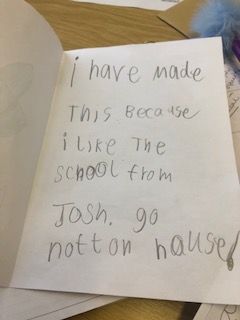 i have made
This Because
i like The
school from
Josh. go
notton hause!